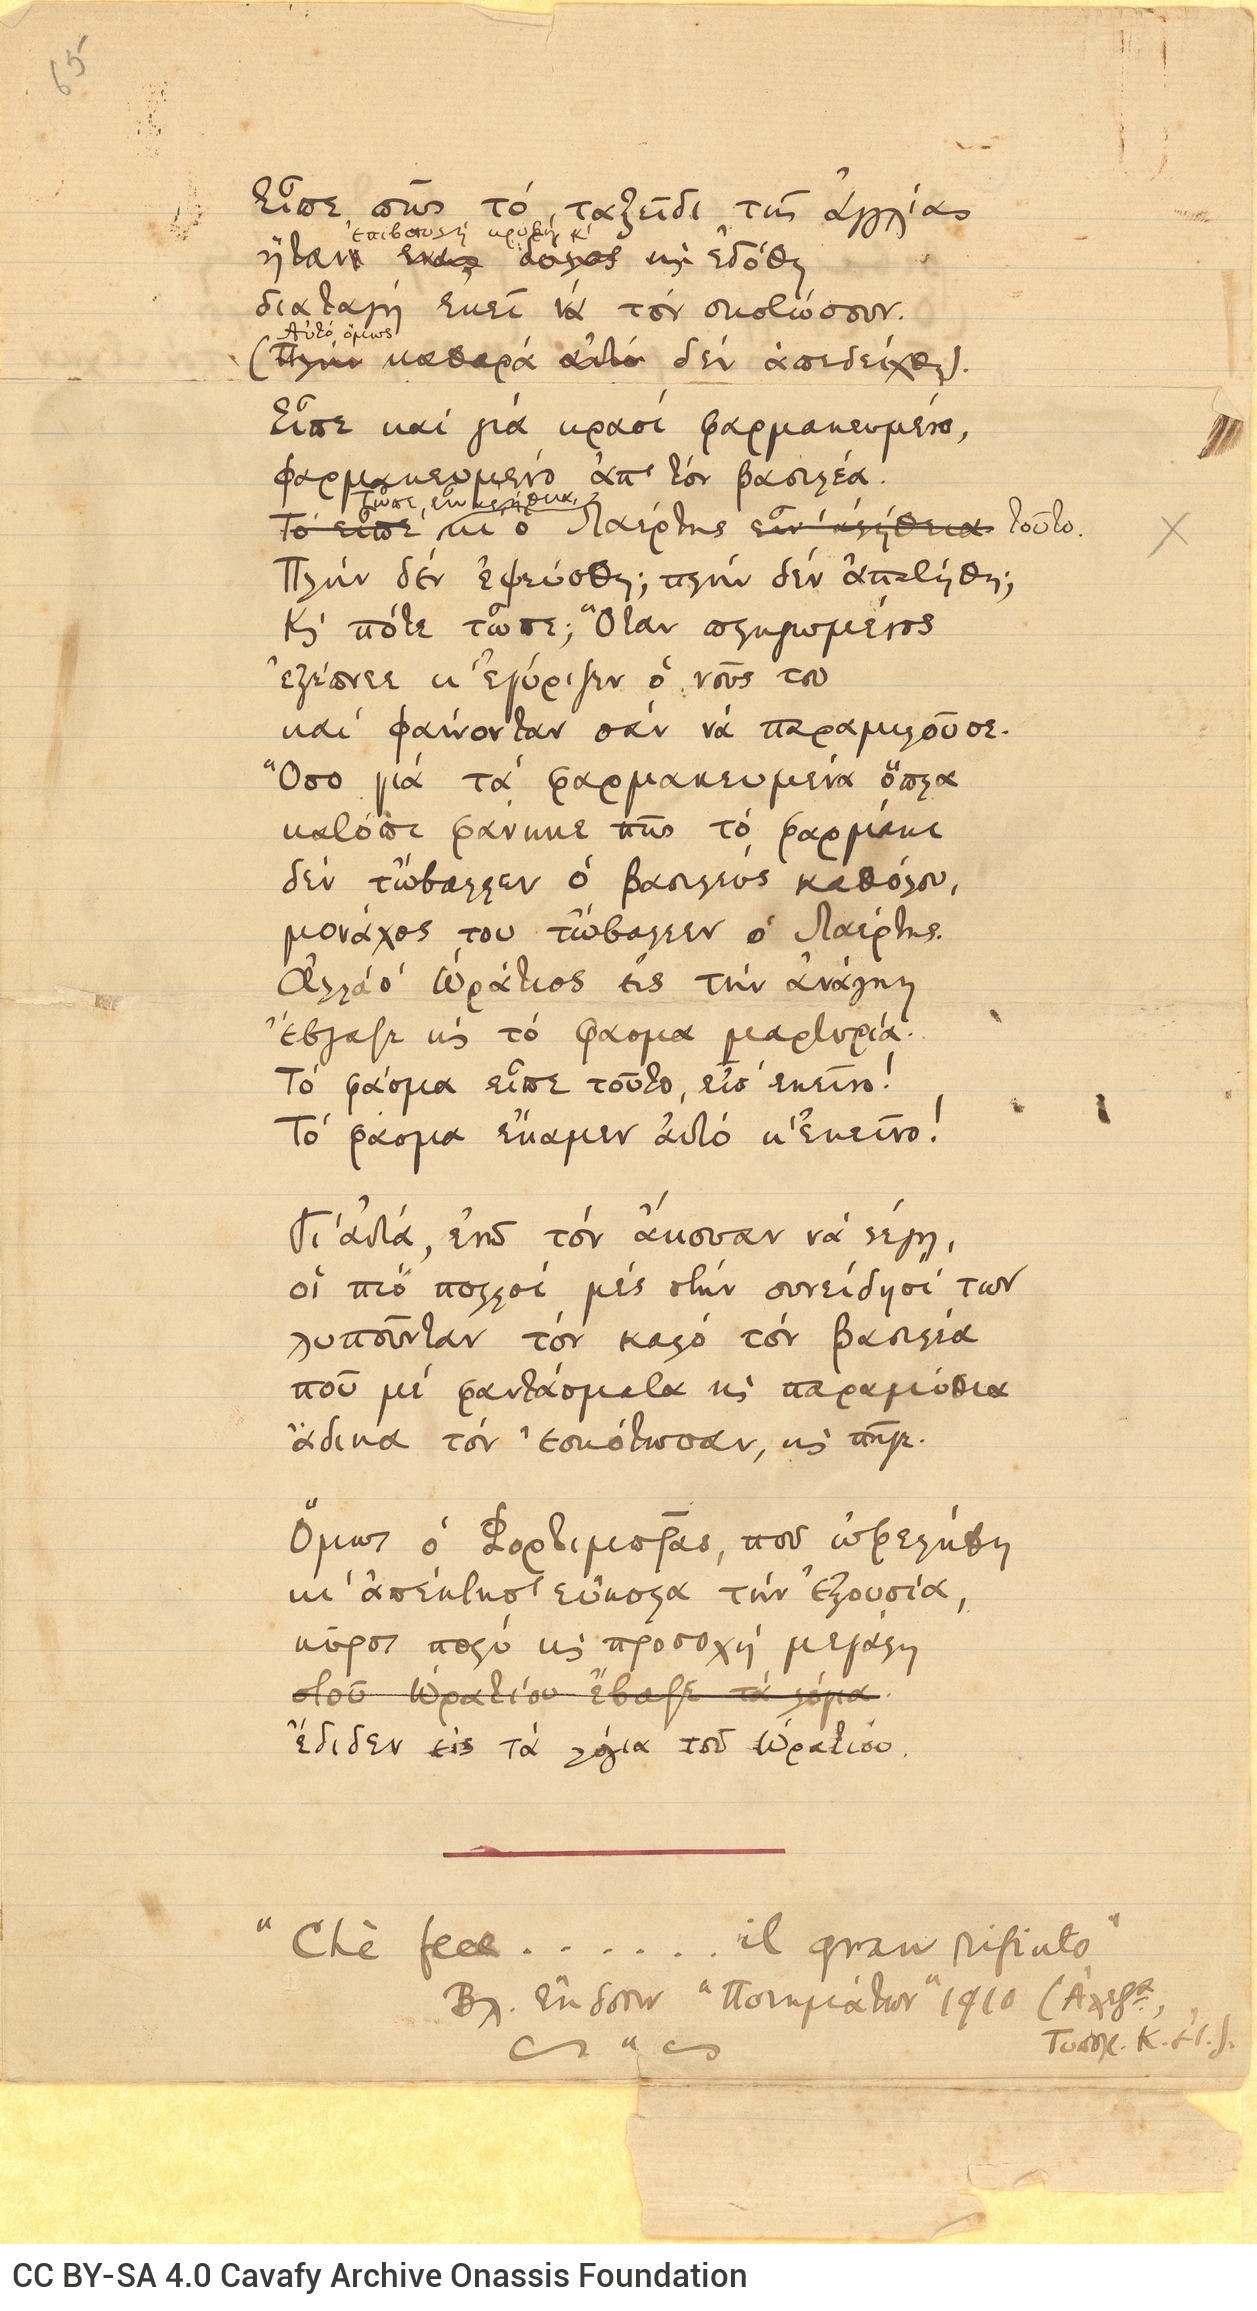 65
Εἶπε πῶς τό ταξεῖδι τῆς Ἀγγλίας
ἐπιβουλή κρυφή, κ'
ἤταν ἕνας δόλος κι ἐδόθη
διαταγή ἐκεῖ νά τόν σκοτώσουν.
Αὐτό ὅμως
(Πλήν καθαρά αὐτό δέν ἀπεδείχθη).
Εἶπε καί γιά κρασί φαρμακευμένο,
φαρμακευμένο ἀπ' τόν βασιλέα.
Τὦπε, εἶν' ἀλήθεια,
Τό εἶπε κι ὁ Λαέρτης εἶν' ἀλήθεια τοῦτο.
Πλήν δέν ἐψεύσθη; πλήν δέν ἀπατήθη;
Κι πότε τὦπε; Ὅταν πληγωμένος
ἐξέπνεε κ' ἐγύριζεν ὁ νοῦς του
καί φαίνονταν σάν νά παραμιλοῦσε.
Ὅσο γιά τά φαρμακευμένα ὅπλα
κατόπι φάνηκε πῶς τό φαρμάκι
δέν τὤβαλλεν ὁ βασιλεύς καθόλου,
μονάχος του τὤβαλεν ὁ Λαέρτης.
Ἀλλά ὁ Ὡράτιος εἰς τήν ἀνάγκη
ἔβγαζε κι τό φάσμα μαρτυρία.
Τό φάσμα εἶπε τοῦτο, εἶπ' ἐκεῖνο!
Τό φάσμα ἔκαμεν αὐτό κ' ἐκεῖνο!
Γι' αὐτά, ἐνῶ τόν ἄκουαν νά λέγῃ,
οἱ πιό πολλοί μές στήν συνείδησί των
λυποῦνταν τόν καλό τόν βασιλέα
ποῦ μέ φαντάσματα κι παραμύθια
ἄδικα τόν ἐσκότωσαν, κι πῆγε.
Ὅμως ὁ Φορτιμπρᾶς, ποῦ ὠφελήθη
κι ἀπέκτησ' εὔκολα τήν ἐξουσία,
κῦρος πολύ κι προσοχή μεγάλη
στοῦ Ὡρατίου ἔβαζε τά λόγια.
ἔδιδεν εἰς τά λόγια τοῦ Ὡρατίου.
"Chè fece....... il gran rifiuto"
Βλ. ἔκδοσιν "Ποιημάτων" 1910 (Ἀλεξ.,
Τυπογρ. Κ.
"
CC BY-SA 4.0 Cavafy Archive Onassis Foundation